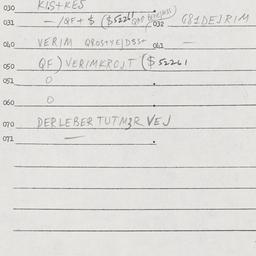 030 KIS+KES
031 -/QF+$ ($52261 032 G81DEJRIM
040 VERIM QROS+YEJDSS+ 041 —
050 QF) VERIMKROJT ($52261
051 0
060 0
070 DERLEBERTUTMZR VEJ
071 —